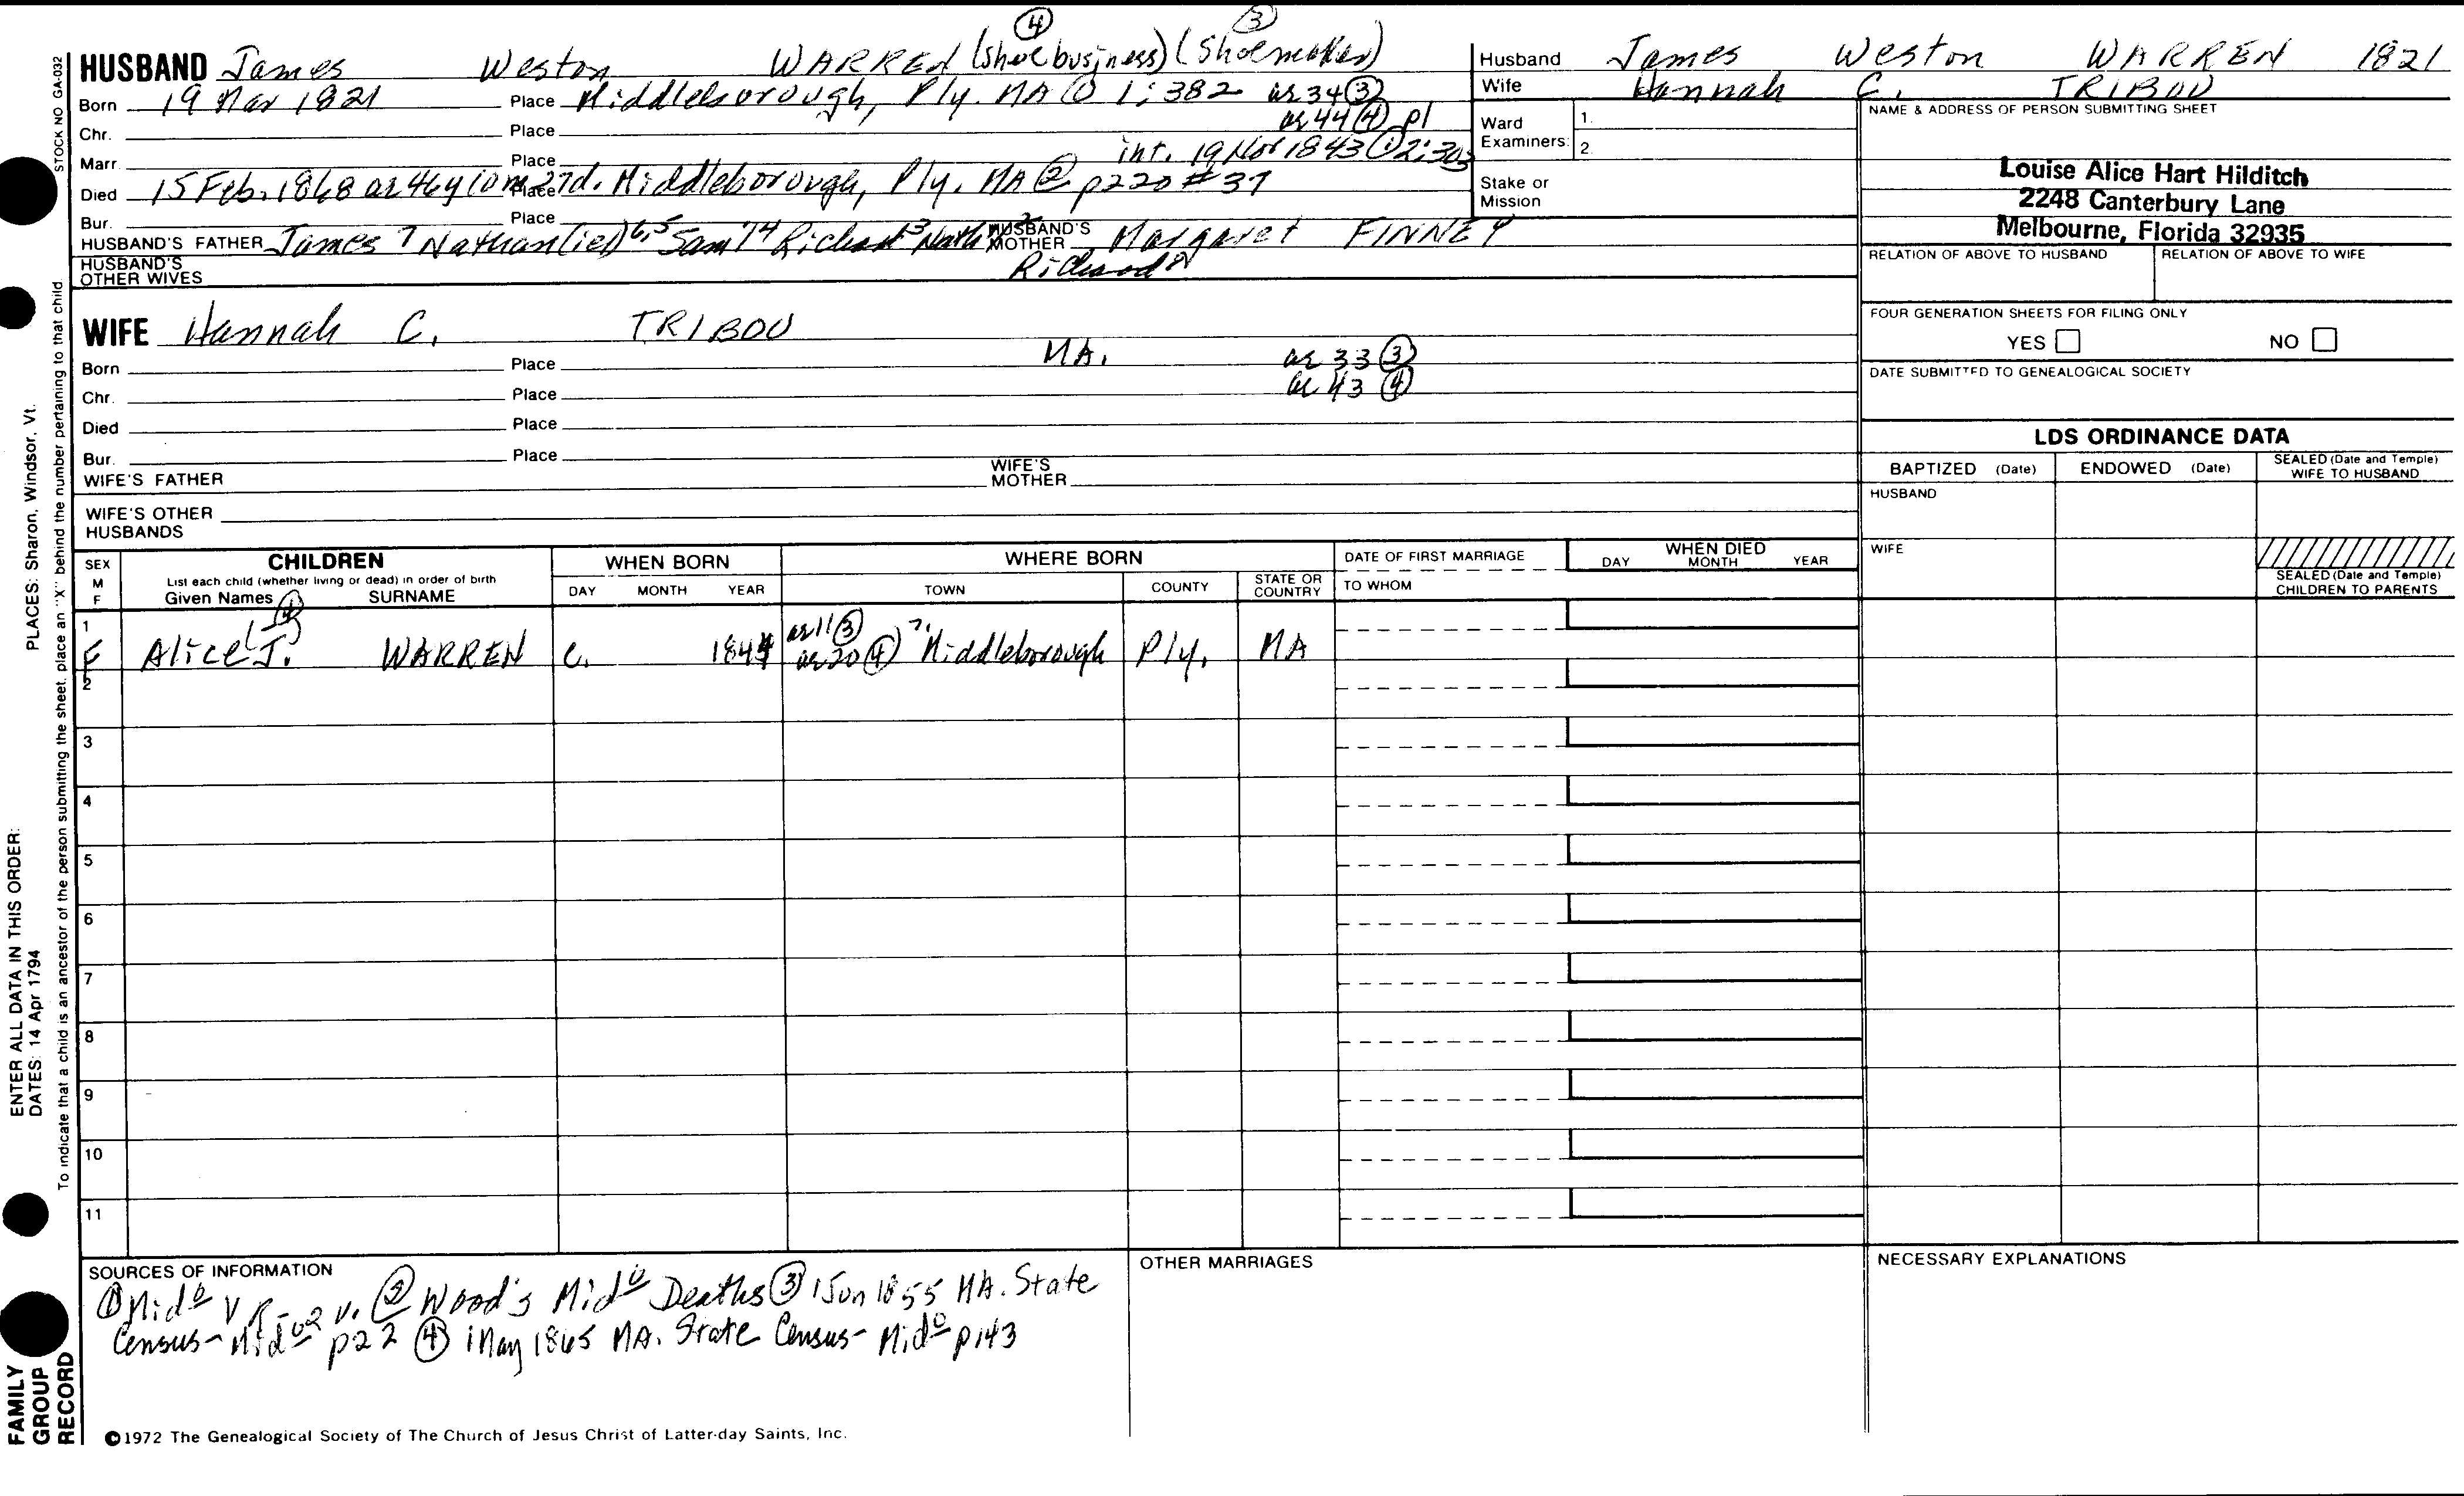 ④ ③
HUSBAND James Weston WARREN (shoe business) (Shoemaker)
Born 19 Mar 1821 Place Middleborough, Ply. MA ① 1:382 ae 34 ③
Chr. Place ae 44 ④ p1
Marr. Place int. 19 Nov 1843 ① 2:303
Died 15 Feb. 1868 ae 46y 10m 27d. Place Middleborough, Ply. MA ② p220 #37
Bur. Place
HUSBAND'S FATHER James 7 Nathan(iel) 6,5 Sam'l 4 Richard 3 Nath 2 HUSBAND'S MOTHER Margaret FINNEY
HUSBAND'S OTHER WIVES Richard
WIFE Hannah C. TRIBOU
Born Place MA. ae 33 ③
Chr. Place ae 43 ④
Died Place
Bur. Place
WIFE'S FATHER WIFE'S MOTHER
WIFE'S OTHER HUSBANDS
Husband James Weston WARREN 1821
Wife Hannah C. TRIBOU
Ward Examiners: 1. 2.
Stake or Mission
NAME & ADDRESS OF PERSON SUBMITTING SHEET
Louise Alice Hart Hilditch
2248 Canterbury Lane
Melbourne, Florida 32935
RELATION OF ABOVE TO HUSBAND RELATION OF ABOVE TO WIFE
FOUR GENERATION SHEETS FOR FILING ONLY
YES NO
DATE SUBMITTED TO GENEALOGICAL SOCIETY
LDS ORDINANCE DATA
BAPTIZED (Date) ENDOWED (Date) SEALED (Date and Temple) WIFE TO HUSBAND
HUSBAND
WIFE
SEALED (Date and Temple) CHILDREN TO PARENTS
SEX M F CHILDREN WHEN BORN WHERE BORN DATE OF FIRST MARRIAGE WHEN DIED
List each child (whether living or dead) in order of birth
Given Names SURNAME DAY MONTH YEAR TOWN COUNTY STATE OR COUNTRY TO WHOM DAY MONTH YEAR
1 ④ ae 11 ③
F Alice (J.) WARREN c. 1844 ae 20 ④ ?, Middleborough Ply. MA
2
3
4
5
6
7
8
9
10
11
SOURCES OF INFORMATION
① Mid° VR-2 v. ② Wood's Mid° Deaths ③ 1 Jun 1855 MA. State
Census - Mid° p22 ④ 1 May 1865 MA. State Census - Mid° p143
OTHER MARRIAGES
NECESSARY EXPLANATIONS
©1972 The Genealogical Society of The Church of Jesus Christ of Latter-day Saints, Inc.
STOCK NO GA-032
To indicate that a child is an ancestor of the person submitting the sheet, place an "X" behind the number pertaining to that child.
PLACES: Sharon, Windsor, Vt.
ENTER ALL DATA IN THIS ORDER:
DATES: 14 Apr 1794
FAMILY
GROUP
RECORD